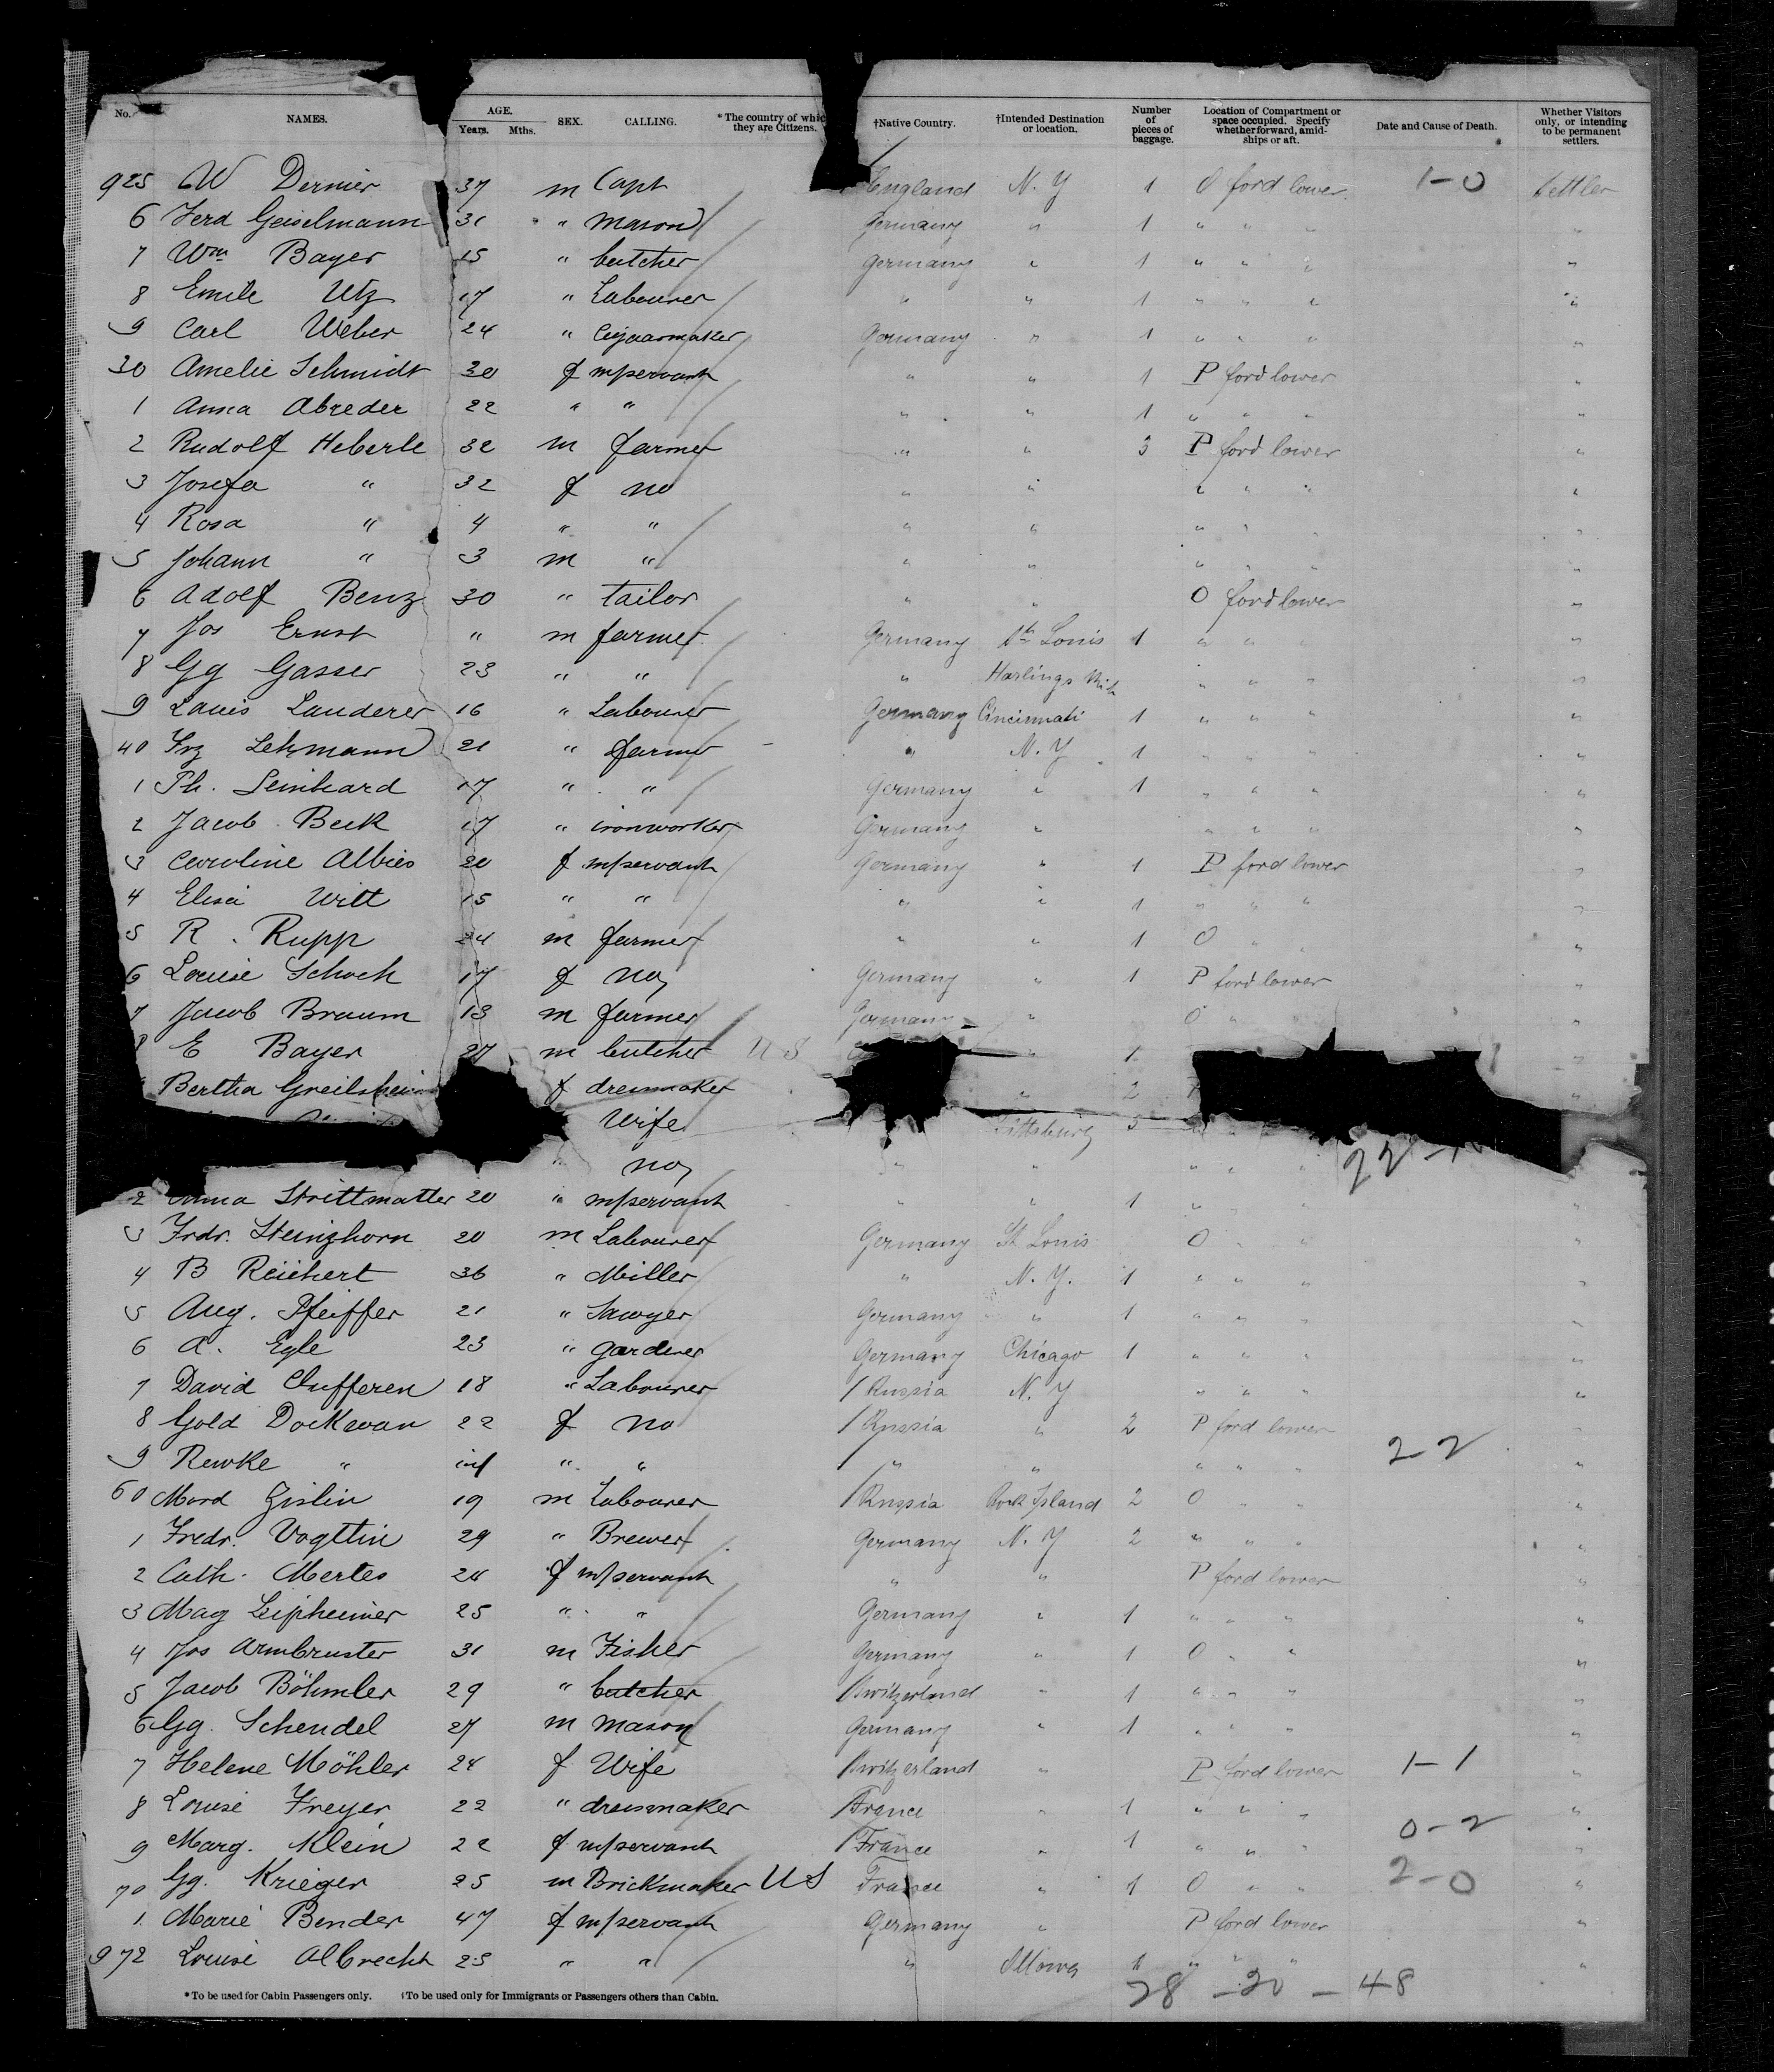 No. NAMES. AGE. Years. Mths. SEX. CALLING. *The country of which they are Citizens. †Native Country. †Intended Destination or location. Number of pieces of baggage. Location of Compartment or space occupied. Specify whether forward, amidships or aft. Date and Cause of Death. Whether Visitors only, or intending to be permanent settlers.
925 W Dernier 37 m Capt England N.Y 1 O ford lower 1-0 Settler
6 Ferd Geiselmann 31 " mason Germany " 1 " " " "
7 Wm Bayer 15 " butcher Germany " 1 " " " "
8 Emile Utz 17 " Labourer " " 1 " " " "
9 Carl Weber 24 " Cigarmaker Germany " 1 " " " "
30 Amelie Schmidt 30 f m/servant " " 1 P ford lower "
1 Anna Abreder 22 " " " " 1 " " " "
2 Rudolf Heberle 32 m farmer " " 3 P ford lower "
3 Josefa " 32 f no " " " " " "
4 Rosa " 4 " " " " " " " "
5 Johann " 3 m " " " " " " "
6 Adolf Benz 30 " tailor " " O ford lower "
7 Jos Ernst " m farmer Germany St Louis 1 " " "
8 Gg Gasser 23 " " " Harlings " " " "
9 Louis Lauderer 16 " Labourer Germany Cincinnati 1 " " " "
40 Frz Lehmann 21 " farmer " N.Y 1 " " " "
1 Ph. Leinhard 17 " " Germany " 1 " " " "
2 Jacob Beck 17 " ironworker Germany " " " " "
3 Caroline Albies 20 f m/servant Germany " 1 P ford lower "
4 Elisa Witt 15 " " " " 1 " " " "
5 R. Rupp 24 m farmer " " 1 O " " "
6 Louise Schoch 17 f no Germany " 1 P ford lower "
7 Jacob Braum 13 m farmer Germany " O " "
8 E Bayer 27 m butcher U S " 1 "
Bertha f dressmaker " 2 "
Wife Pittsburg 5
" no " " " " " 22
2 Anna Strittmatter 20 " m/servant " " 1 " " " "
3 Frdr. Steinghorn 20 m Labourer Germany St Louis O " " "
4 B Reichert 36 " Miller " N.Y. 1 " " " "
5 Aug. Pfeiffer 21 " Sawyer Germany " 1 " " " "
6 A. Egle 23 " gardener Germany Chicago 1 " " " "
7 David Chufferen 18 " Labourer Russia N.Y " " " "
8 Gold Dockwan 22 f no Russia " 2 P ford lower "
9 Rewke " inf " " " " " " " 2-2 "
60 Mord Gislin 19 m Labourer Russia Rock Island 2 O " " "
1 Fredr. Vogttin 29 " Brewer Germany N.Y 2 " " " "
2 Cath. Mertes 24 f m/servant " " P ford lower "
3 Mag Leipheimer 25 " " Germany " 1 " " " "
4 Jos Armbruster 31 m Fisher Germany " 1 O " " "
5 Jacob Böhmler 29 " butcher Switzerland " 1 " " " "
6 Gg. Schendel 27 m mason Germany " 1 " " " "
7 Helene Möhler 24 f Wife Switzerland " P ford lower 1-1 "
8 Louise Freyer 22 " dressmaker France " 1 " " " "
9 Marg. Klein 22 f m/servant France " 1 " " " 0-2 "
70 Gg. Krieger 25 m Brickmaker U S France " 1 O " " 2-0 "
1 Marie Bender 47 f m/servant Germany " P ford lower "
972 Louise Albrecht 25 " " " 1 " " " "
28 - 20 - 48
*To be used for Cabin Passengers only. †To be used only for Immigrants or Passengers others than Cabin.